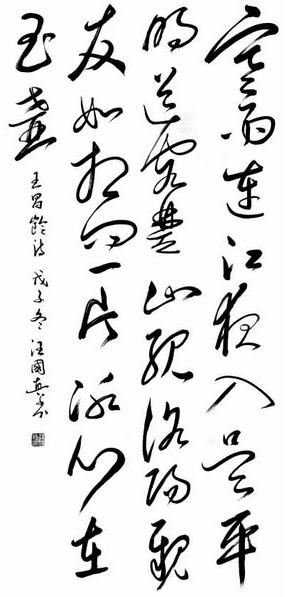 寒雨連江夜入吴平
明送客楚山孤洛陽親
友如相问一片冰心在
玉壺
王昌齡诗 戊子冬 汪國真书